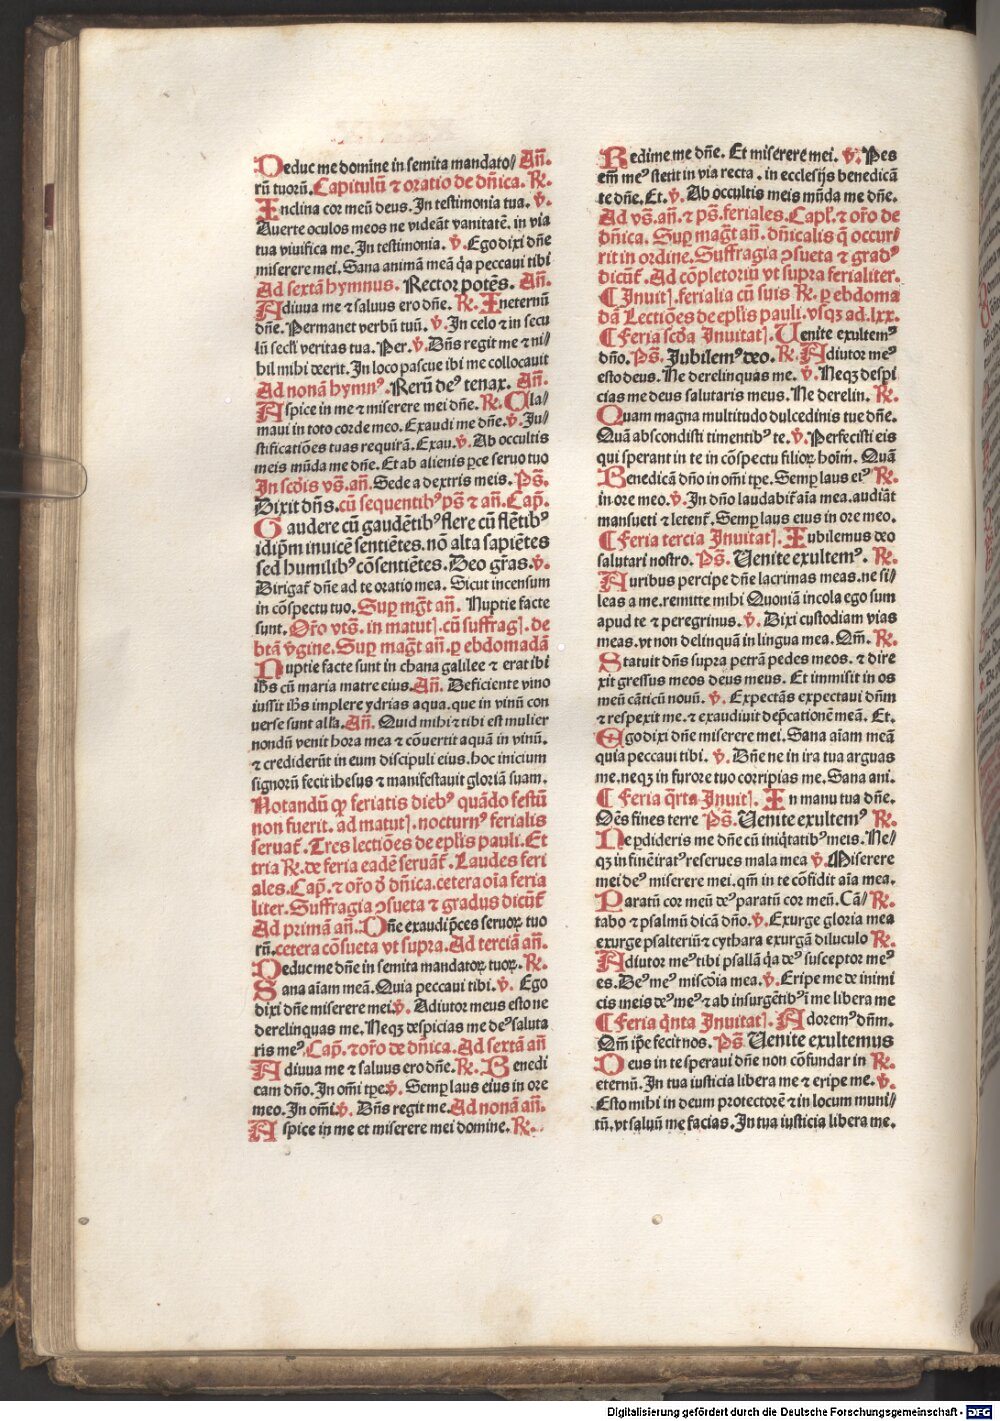 Deduc me domine in semita mandato/ Añ.
rū tuorū. Capitulū ⁊ oratio de dñica. ℟.
Inclina cor meū deus. In testimonia tua. ℣.
Auerte oculos meos ne videāt vanitatē. in via
tua viuifica me. In testimonia. ℣. Ego dixi dñe
miserere mei. Sana animā meā q̄a peccaui tibi
Ad sextā hymnus. Rector potēs. Añ.
Adiuua me ⁊ saluus ero dñe. ℟. In eternū
dñe. Permanet verbū tuū. ℣. In celo ⁊ in secu
lū secl̄i veritas tua. Per. ℣. Dñs regit me ⁊ ni/
hil mihi deerit. In loco pascue ibi me collocauit
Ad nonā hymnꝰ. Rerū deꝰ tenax. Añ.
Aspice in me ⁊ miserere mei dñe. ℟. Cla/
maui in toto corde meo. Exaudi me dñe. ℣. Ju/
stificatiōes tuas requirā. Exau. ℣. Ab occultis
meis mūda me dñe. Et ab alienis ꝑce seruo tuo
In scd̄is vs̄. añ. Sede a dextris meis. Ps̄.
Dixit dñs. cū sequentibꝰ ps̄ ⁊ añ. Cap̄.
Gaudere cū gaudētibꝰ flere cū flētibꝰ
idip̄m inuicē sentiētes. nō alta sapiētes
sed humilibꝰ cōsentiētes. Deo gr̄as. ℣.
Dirigat̄ dñe ad te oratio mea. Sicut incensum
in cōspectu tuo. Suꝑ mḡt añ. Nuptie facte
sunt. Or̄o vts̄. in matut]. cū suffrag]. de
btā v̄gine. Suꝑ magt̄ añ. ꝑ ebdomadā
Nuptie facte sunt in chana galilee ⁊ erat ibi
ihs̄ cū maria matre eius. Añ. Deficiente vino
iussit ihs̄ implere ydrias aqua. que in vinū con
uerse sunt alla. Añ. Quid mihi ⁊ tibi est mulier
nondū venit hora mea ⁊ cōuertit aquā in vinū.
⁊ crediderūt in eum discipuli eius. hoc inicium
signorū fecit ihesus ⁊ manifestauit gloriā suam.
Notandū ꝙ feriatis diebꝰ quādo festū
non fuerit. ad matut]. nocturnꝰ ferialis
seruat̄. Tres lectiōes de epl̄is pauli. Et
tria ℟. de feria eadē seruāt̄. Laudes feri
ales. Cap̄. ⁊ or̄o d̄ dñica. cetera oīa feria
liter. Suffragia ꝯsueta ⁊ gradus dicūt̄
Ad primā añ. Dñe exaudi p̄ces seruoꝝ tuo
rū. cetera cōsueta vt supra. Ad terciā añ.
Deduc me dñe in semita mandatoꝝ tuoꝝ. ℟.
Sana aīam meā. Quia peccaui tibi. ℣. Ego
dixi dñe miserere mei ℣. Adiutor meus esto ne
derelinquas me. Neqꝫ despicias me deꝰ saluta
ris meꝰ. Cap̄. ⁊ or̄o de dñica. Ad sextā añ
Adiuua me ⁊ saluus ero dñe. ℟. Benedi
cam dño. In om̄i tp̄e ℣. Semꝑ laus eius in ore
meo. In om̄i ℣. Dñs regit me. Ad nonā añ.
Aspice in me et miserere mei domine. ℟.
Redime me dñe. Et miserere mei. ℣. Pes
em̄ meꝰ stetit in via recta. in ecclesijs benedicā
te dñe. Et. ℣. Ab occultis meis mūda me dñe.
Ad vs̄. añ. ⁊ ps̄. feriales. Capl̄. ⁊ or̄o de
dñica. Suꝑ magt̄ añ. dñicalis q̄ occur/
rit in ordine. Suffragia ꝯsueta ⁊ gradꝰ
dicūt̄. Ad cōpletoriū vt supra ferialiter.
¶ Inuit]. ferialia cū suis ℟. ꝑ ebdoma
dā Lectiōes de epl̄is pauli. vsqꝫ ad. lxx.
¶ Feria scd̄a Inuitat]. Uenite exultemꝰ
dño. Ps̄. Jubilemꝰ deo. ℟. Adiutor meꝰ
esto deus. Ne derelinquas me. ℣. Neqꝫ despi
cias me deus salutaris meus. Ne derelin. ℟.
Quam magna multitudo dulcedinis tue dñe.
Quā abscondisti timentibꝰ te. ℣. Perfecisti eis
qui sperant in te in cōspectu filioꝝ hoīm. Quā
Benedicā dño in om̄i tp̄e. Semꝑ laus eiꝰ ℟.
in ore meo. ℣. In dño laudabit̄ aīa mea. audiāt
mansueti ⁊ letent̄. Semꝑ laus eius in ore meo.
¶ Feria tercia Inuitat]. Iubilemus deo
salutari nostro. Ps̄. Uenite exultemꝰ. ℟.
Auribus percipe dñe lacrimas meas. ne si/
leas a me. remitte mihi Quoniā incola ego sum
apud te ⁊ peregrinus. ℣. Dixi custodiam vias
meas. vt non delinquā in lingua mea. Qm̄. ℟.
Statuit dñs supra petrā pedes meos. ⁊ dire
xit gressus meos deus meus. Et immisit in os
meū cāticū nouū. ℣. Expectās expectaui dñm
⁊ respexit me. ⁊ exaudiuit dep̄cationē meā. Et.
Ego dixi dñe miserere mei. Sana aīam meā
quia peccaui tibi. ℣. Dñe ne in ira tua arguas
me. neqꝫ in furore tuo corripias me. Sana ani.
¶ Feria q̄rta Inuit]. In manu tua dñe.
Oēs fines terre Ps̄. Uenite exultemꝰ ℟.
Ne ꝑdideris me dñe cū iniq̄tatibꝰ meis. Ne/
qꝫ in finē iratꝰ reserues mala mea ℣. Miserere
mei deꝰ miserere mei. qm̄ in te cōfidit aīa mea.
Paratū cor meū deꝰ paratū cor meū. Cā/ ℟.
tabo ⁊ psalmū dicā dño. ℣. Exurge gloria mea
exurge psalteriū ⁊ cythara exurgā diluculo ℟.
Adiutor meꝰ tibi psallā q̄a deꝰ susceptor meꝰ
es. Deꝰ meꝰ miscd̄ia mea. ℣. Eripe me de inimi
cis meis deꝰ meꝰ ⁊ ab insurgētibꝰ ī me libera me
¶ Feria q̄nta Inuitat]. Adoremꝰ dñm.
Qm̄ ip̄e fecit nos. Ps̄. Uenite exultemus
Deus in te speraui dñe non cōfundar in ℟.
eternū. In tua iusticia libera me ⁊ eripe me. ℣.
Esto mihi in deum protectorē ⁊ in locum muni/
tū. vt saluū me facias. In tua iusticia libera me.
Digitalisierung gefördert durch die Deutsche Forschungsgemeinschaft - DFG